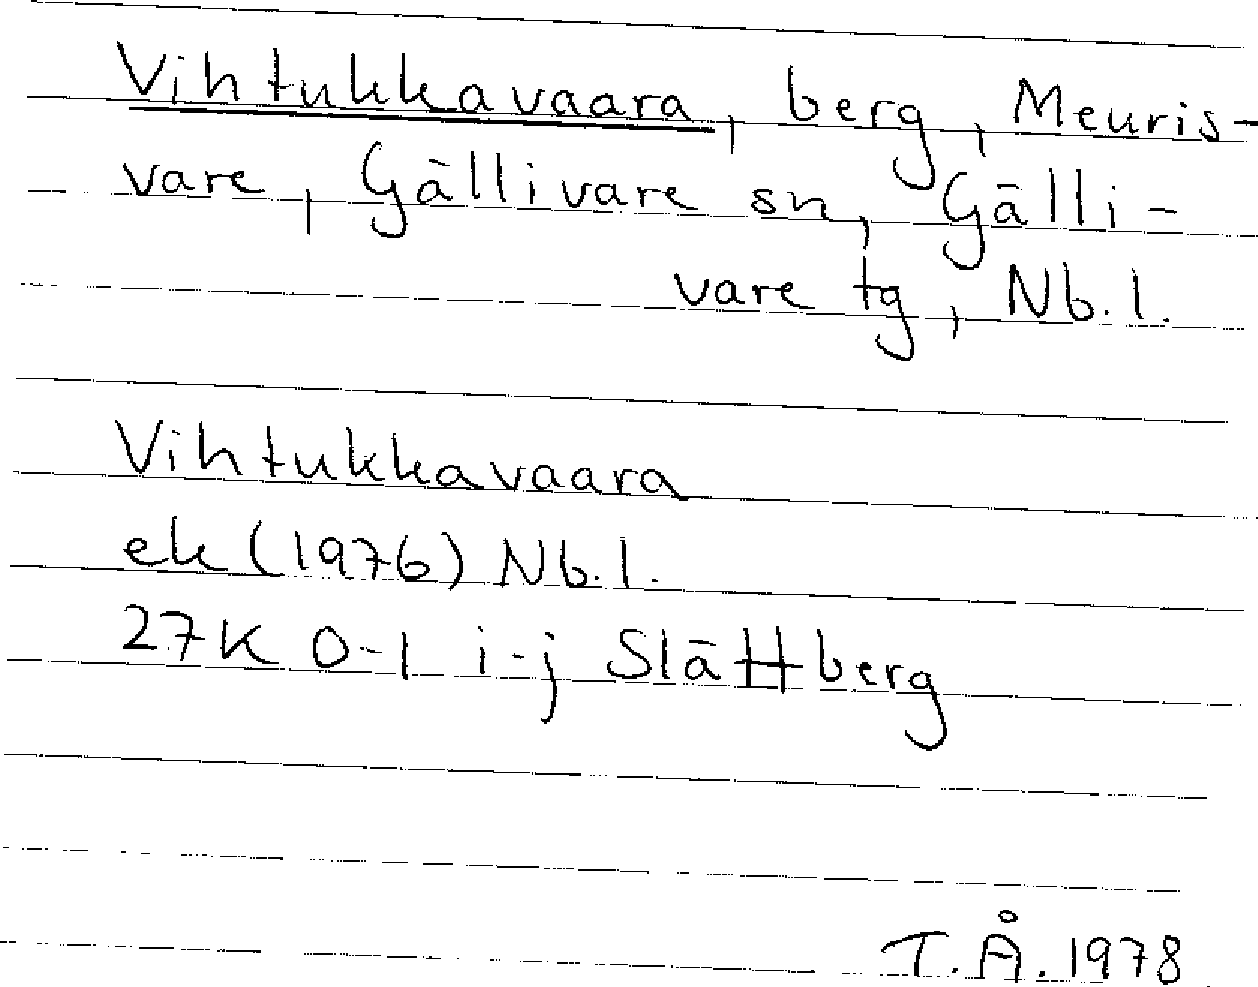 Vihtukkavaara, berg, Meuris-
vare, Gällivare sn, Gälli-
vare tg, Nb.l.
Vihtukkavaara
ek (1976) Nb.l.
27K 0-1 i-j Slättberg
T.Å. 1978